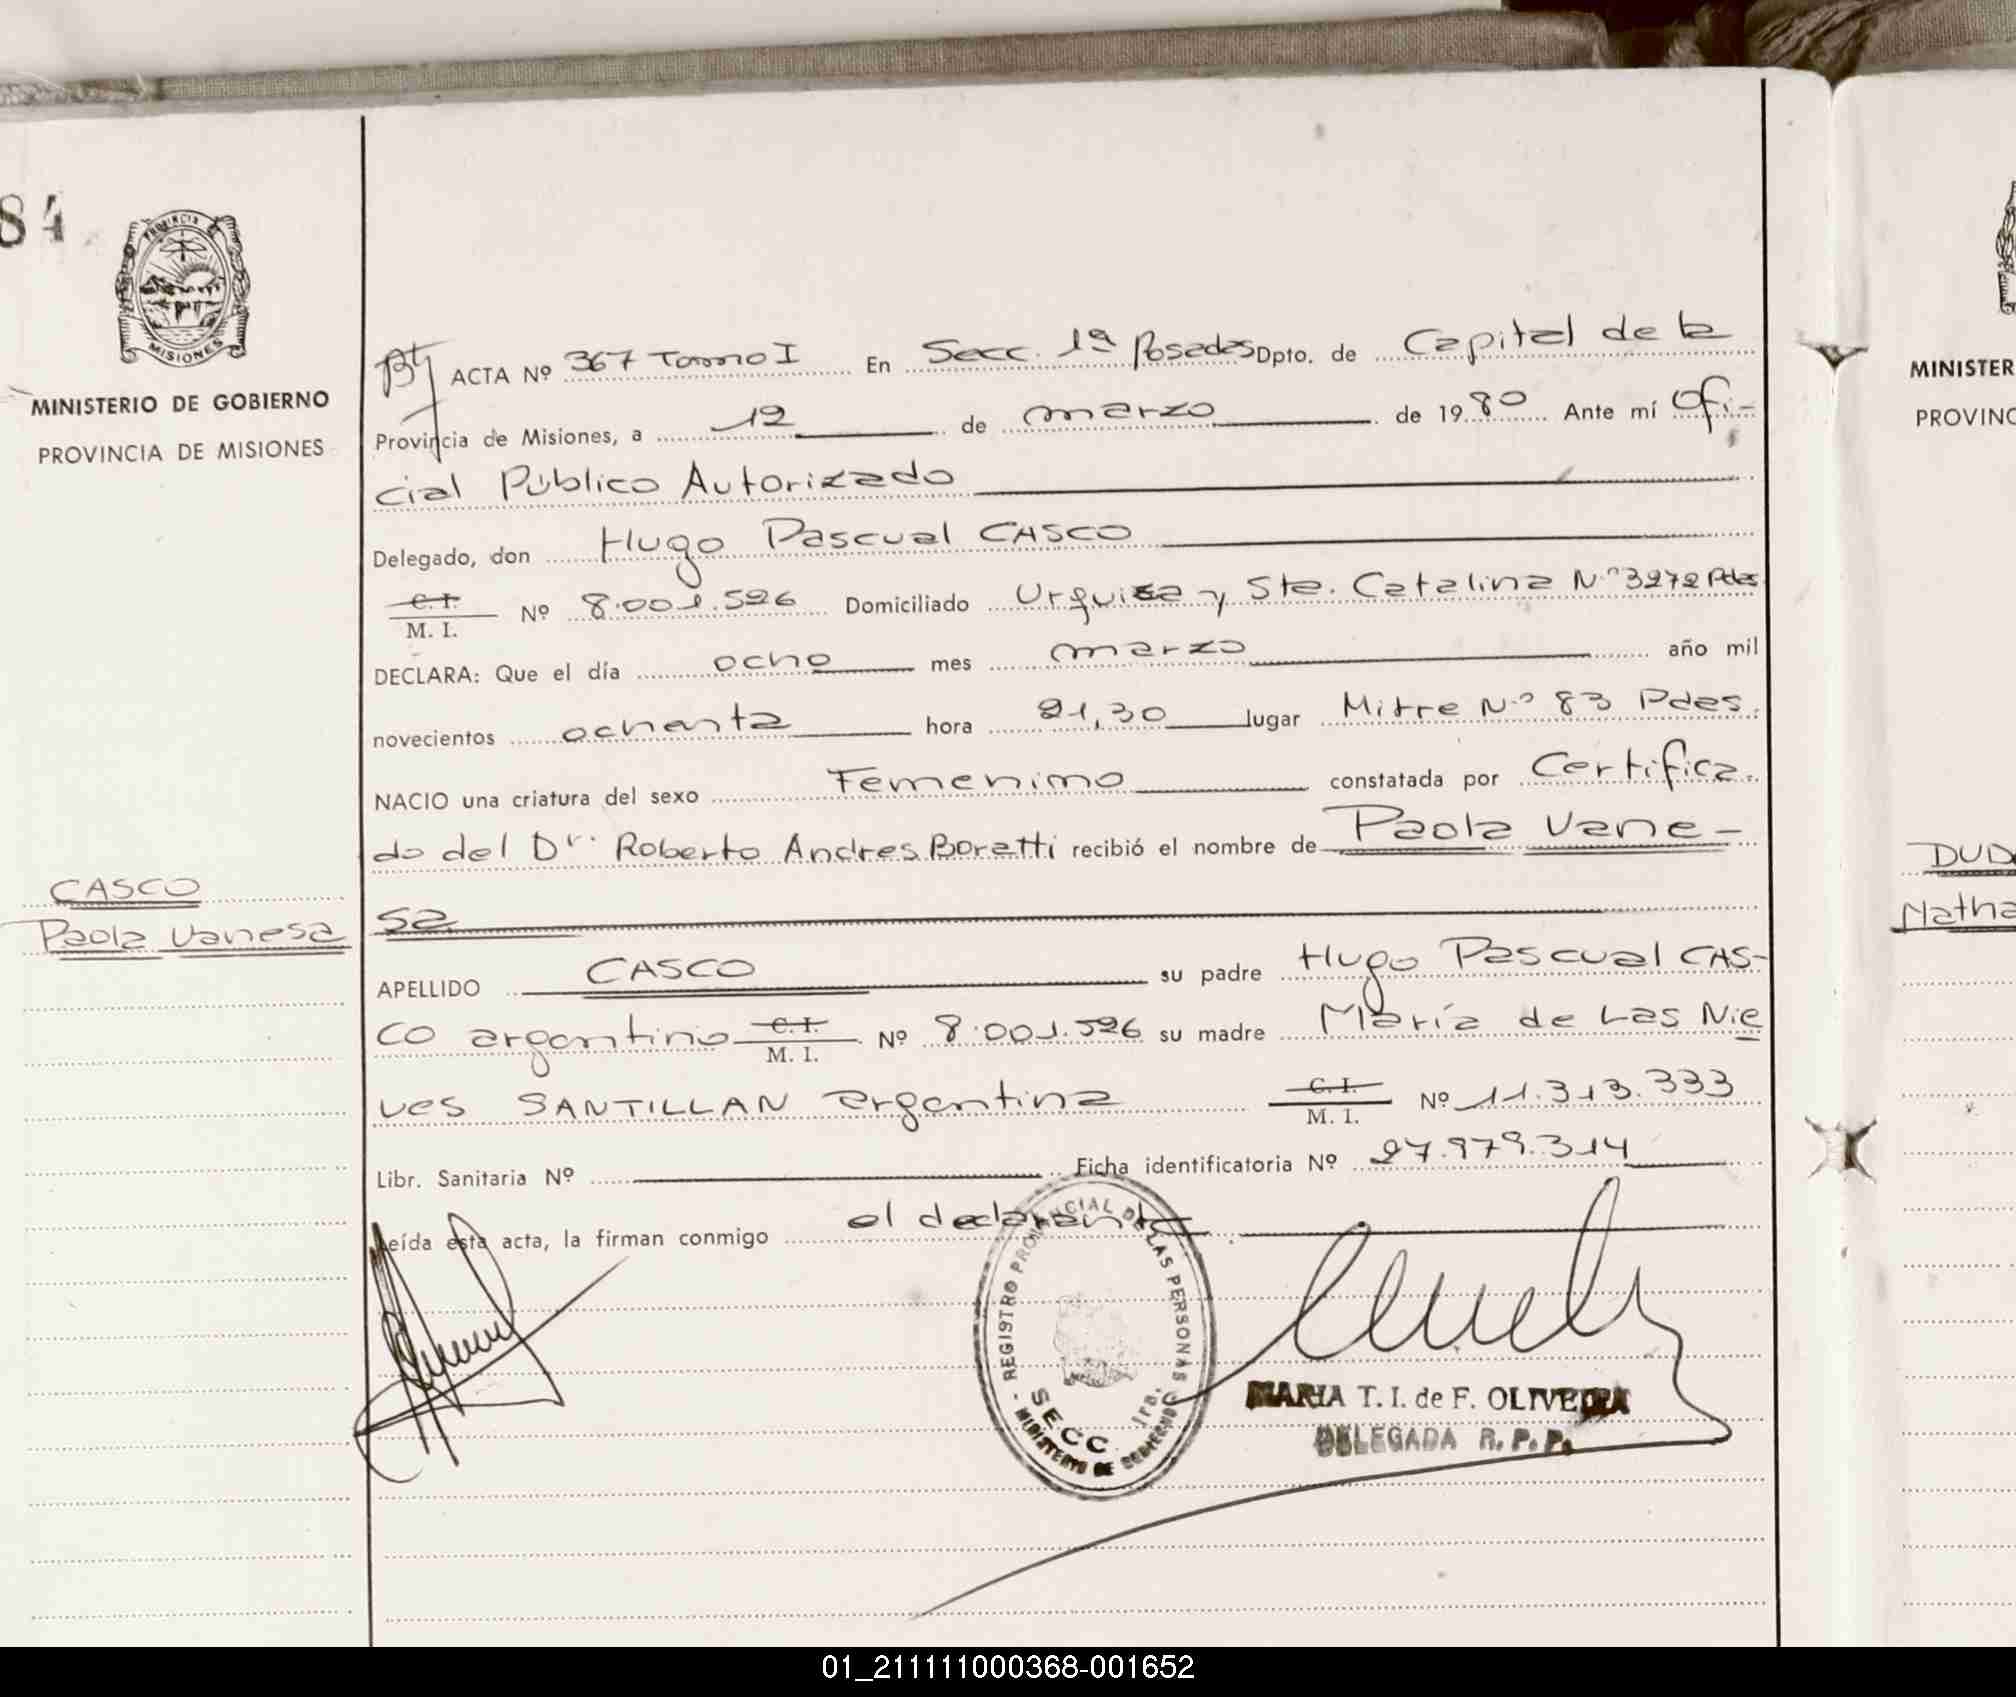 84
PROVINCIA
MISIONES
MINISTERIO DE GOBIERNO
PROVINCIA DE MISIONES
CASCO
Paola Vanesa
ACTA Nº 367 Tomo I En Secc. 1ª Posadas Dpto. de Capital de la
Provincia de Misiones, a 12 de marzo de 1980 Ante mí Ofi-
cial Público Autorizado
Delegado, don Hugo Pascual CASCO
C. I. M. I. Nº 8.001.526 Domiciliado Urquiza y Sta. Catalina Nº 3272 Pdas
DECLARA: Que el día ocho mes marzo año mil
novecientos ochenta hora 21,30 lugar Mitre Nº 83 Pdas.
NACIO una criatura del sexo Femenino constatada por Certifica-
do del Dr. Roberto Andres Boratti recibió el nombre de Paola Vane-
sa
APELLIDO CASCO su padre Hugo Pascual CAS-
CO argentino C. I. M. I. Nº 8.001.526 su madre María de Las Nie
ves SANTILLAN argentina C. I. M. I. Nº 11.313.333
Libr. Sanitaria Nº Ficha identificatoria Nº 27.979.314
Leída esta acta, la firman conmigo el declarante.
REGISTRO PROVINCIAL DE LAS PERSONAS
SECC 1ra.
MINISTERIO DE GOBIERNO
MARIA T. I. de F. OLIVEIRA
DELEGADA R. P. P.
MINISTER
PROVINC
DUD
Natha
01_211111000368-001652